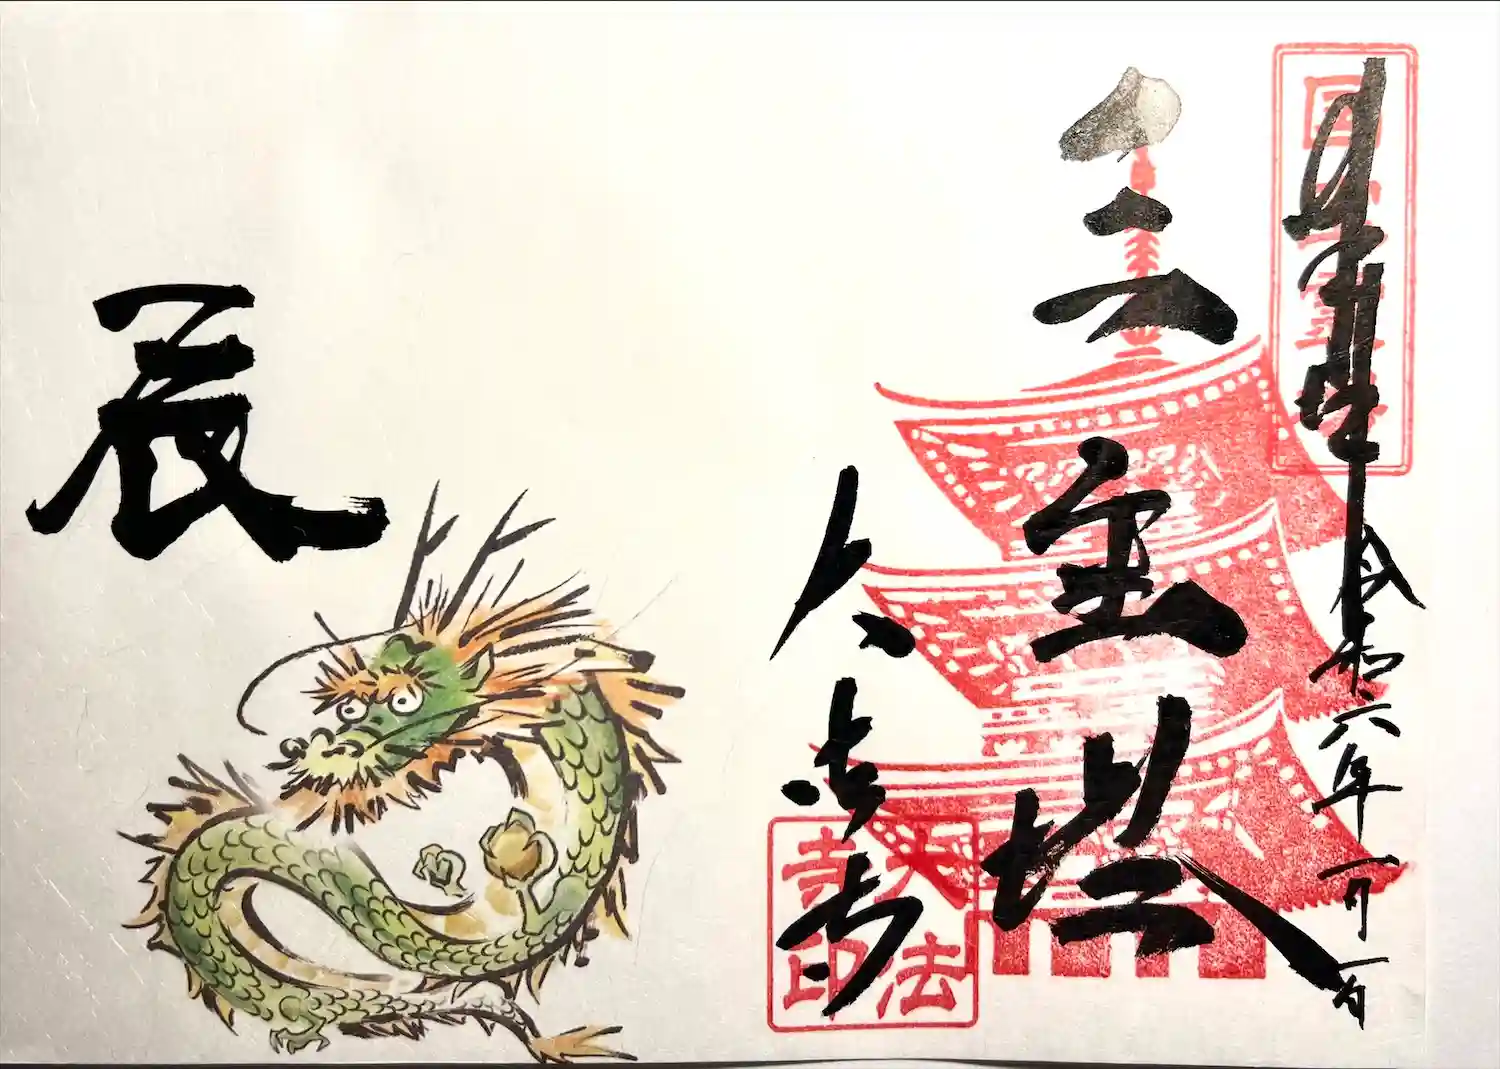 奉拝
令和六年一月一日
国宝三重塔
三重塔
大法寺
大法寺印
辰